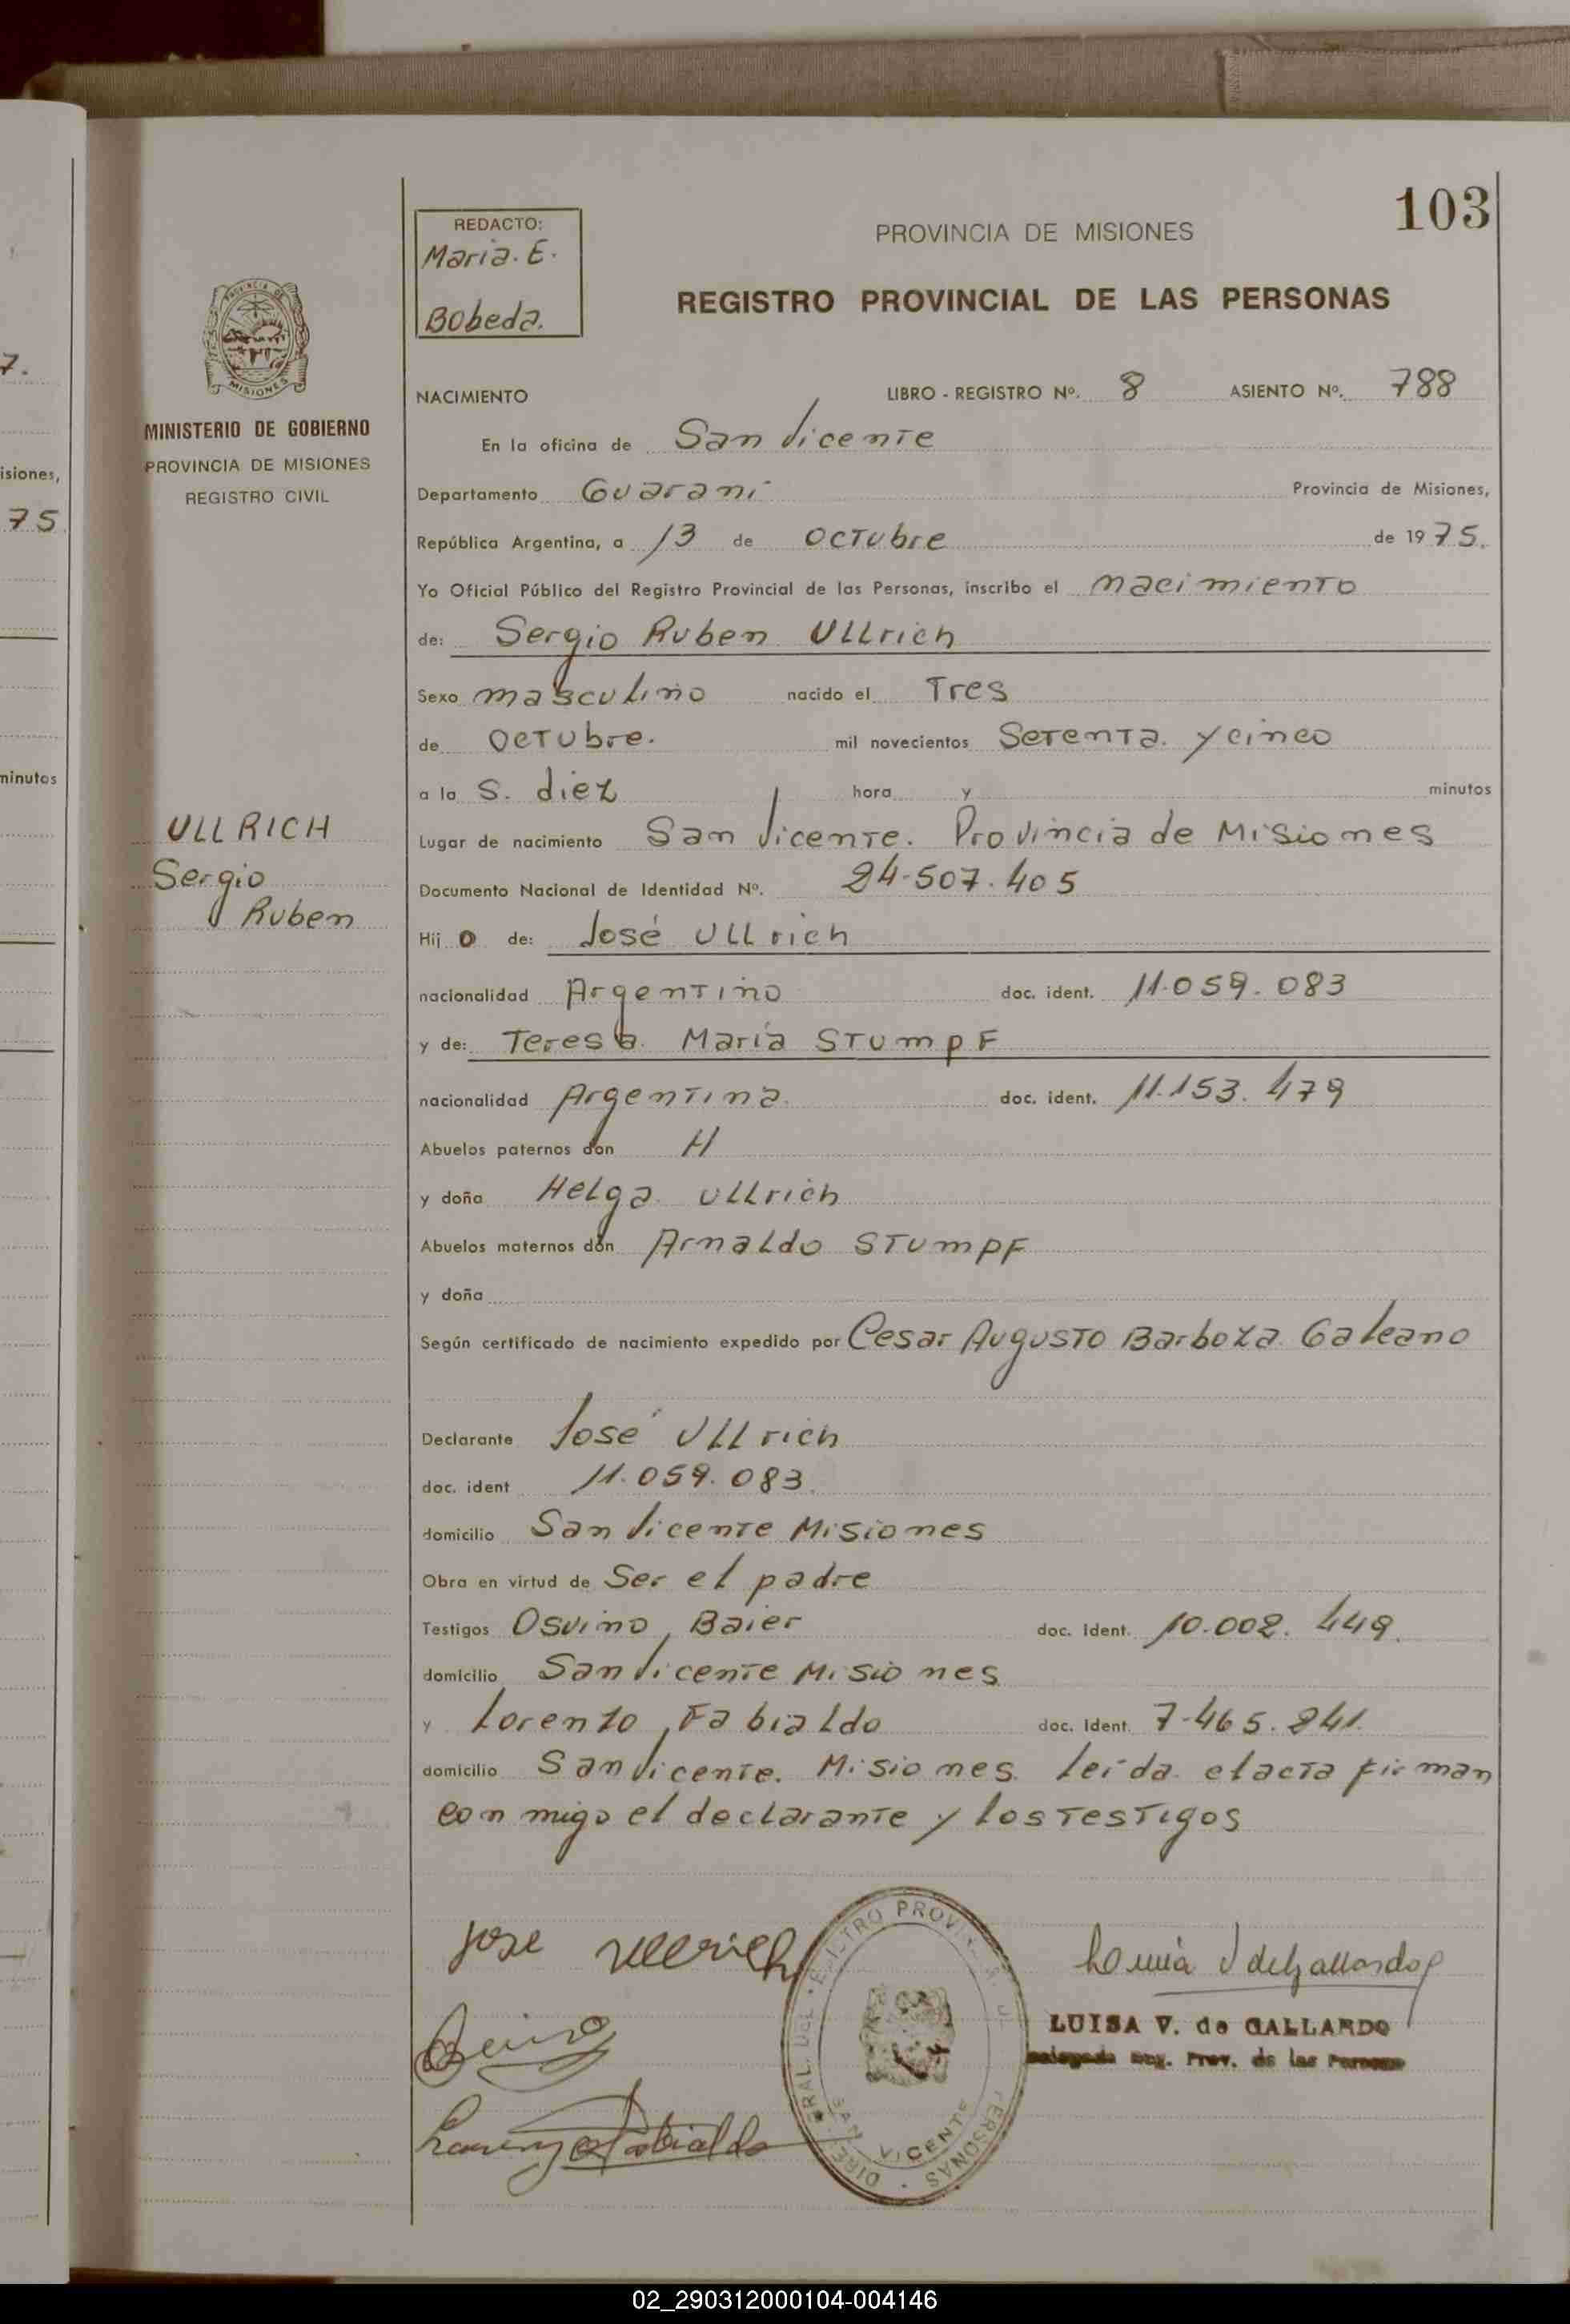 103
REDACTO:
Maria. E.
Bobeda.
PROVINCIA DE MISIONES
REGISTRO PROVINCIAL DE LAS PERSONAS
PROVINCIA DE
MISIONES
MINISTERIO DE GOBIERNO
PROVINCIA DE MISIONES
REGISTRO CIVIL
7.
isiones,
75
minutos
NACIMIENTO LIBRO - REGISTRO Nº. 8 ASIENTO Nº. 788
En la oficina de San Vicente
Departamento Guaraní Provincia de Misiones,
República Argentina, a 13 de Octubre de 1975.
Yo Oficial Público del Registro Provincial de las Personas, inscribo el nacimiento
de: Sergio Ruben Ullrich
Sexo masculino nacido el Tres
de Octubre. mil novecientos Setenta. y cinco
a la S. diez hora y minutos
ULLRICH
Sergio
Ruben
Lugar de nacimiento San Vicente. Provincia de Misiones
Documento Nacional de Identidad Nº. 24-507.405
Hij o de: José Ullrich
nacionalidad Argentino doc. ident. 11.059.083
y de: Teresa. María Stumpf
nacionalidad Argentina. doc. ident. 11.153.479
Abuelos paternos don H
y doña Helga Ullrich
Abuelos maternos don Arnaldo Stumpf
y doña
Según certificado de nacimiento expedido por Cesar Augusto Barboza Galeano
Declarante José Ullrich
doc. ident 11.059.083.
domicilio San Vicente Misiones
Obra en virtud de Ser el padre
Testigos Osvino, Baier doc. Ident. 10.002.449.
domicilio San Vicente Misiones
y Lorenzo, Fabialdo doc. Ident. 7-465.241.
domicilio San Vicente. Misiones. leída el acta firman
con migo el declarante y los testigos
Jose Ullrich
Lorenzo Fabialdo
DIREC. GRAL. DEL REGISTRO PROVINCIAL DE LAS PERSONAS
SAN VICENTE
LUISA V. de GALLARDO
Delegada Reg. Prov. de las Personas
02_290312000104-004146